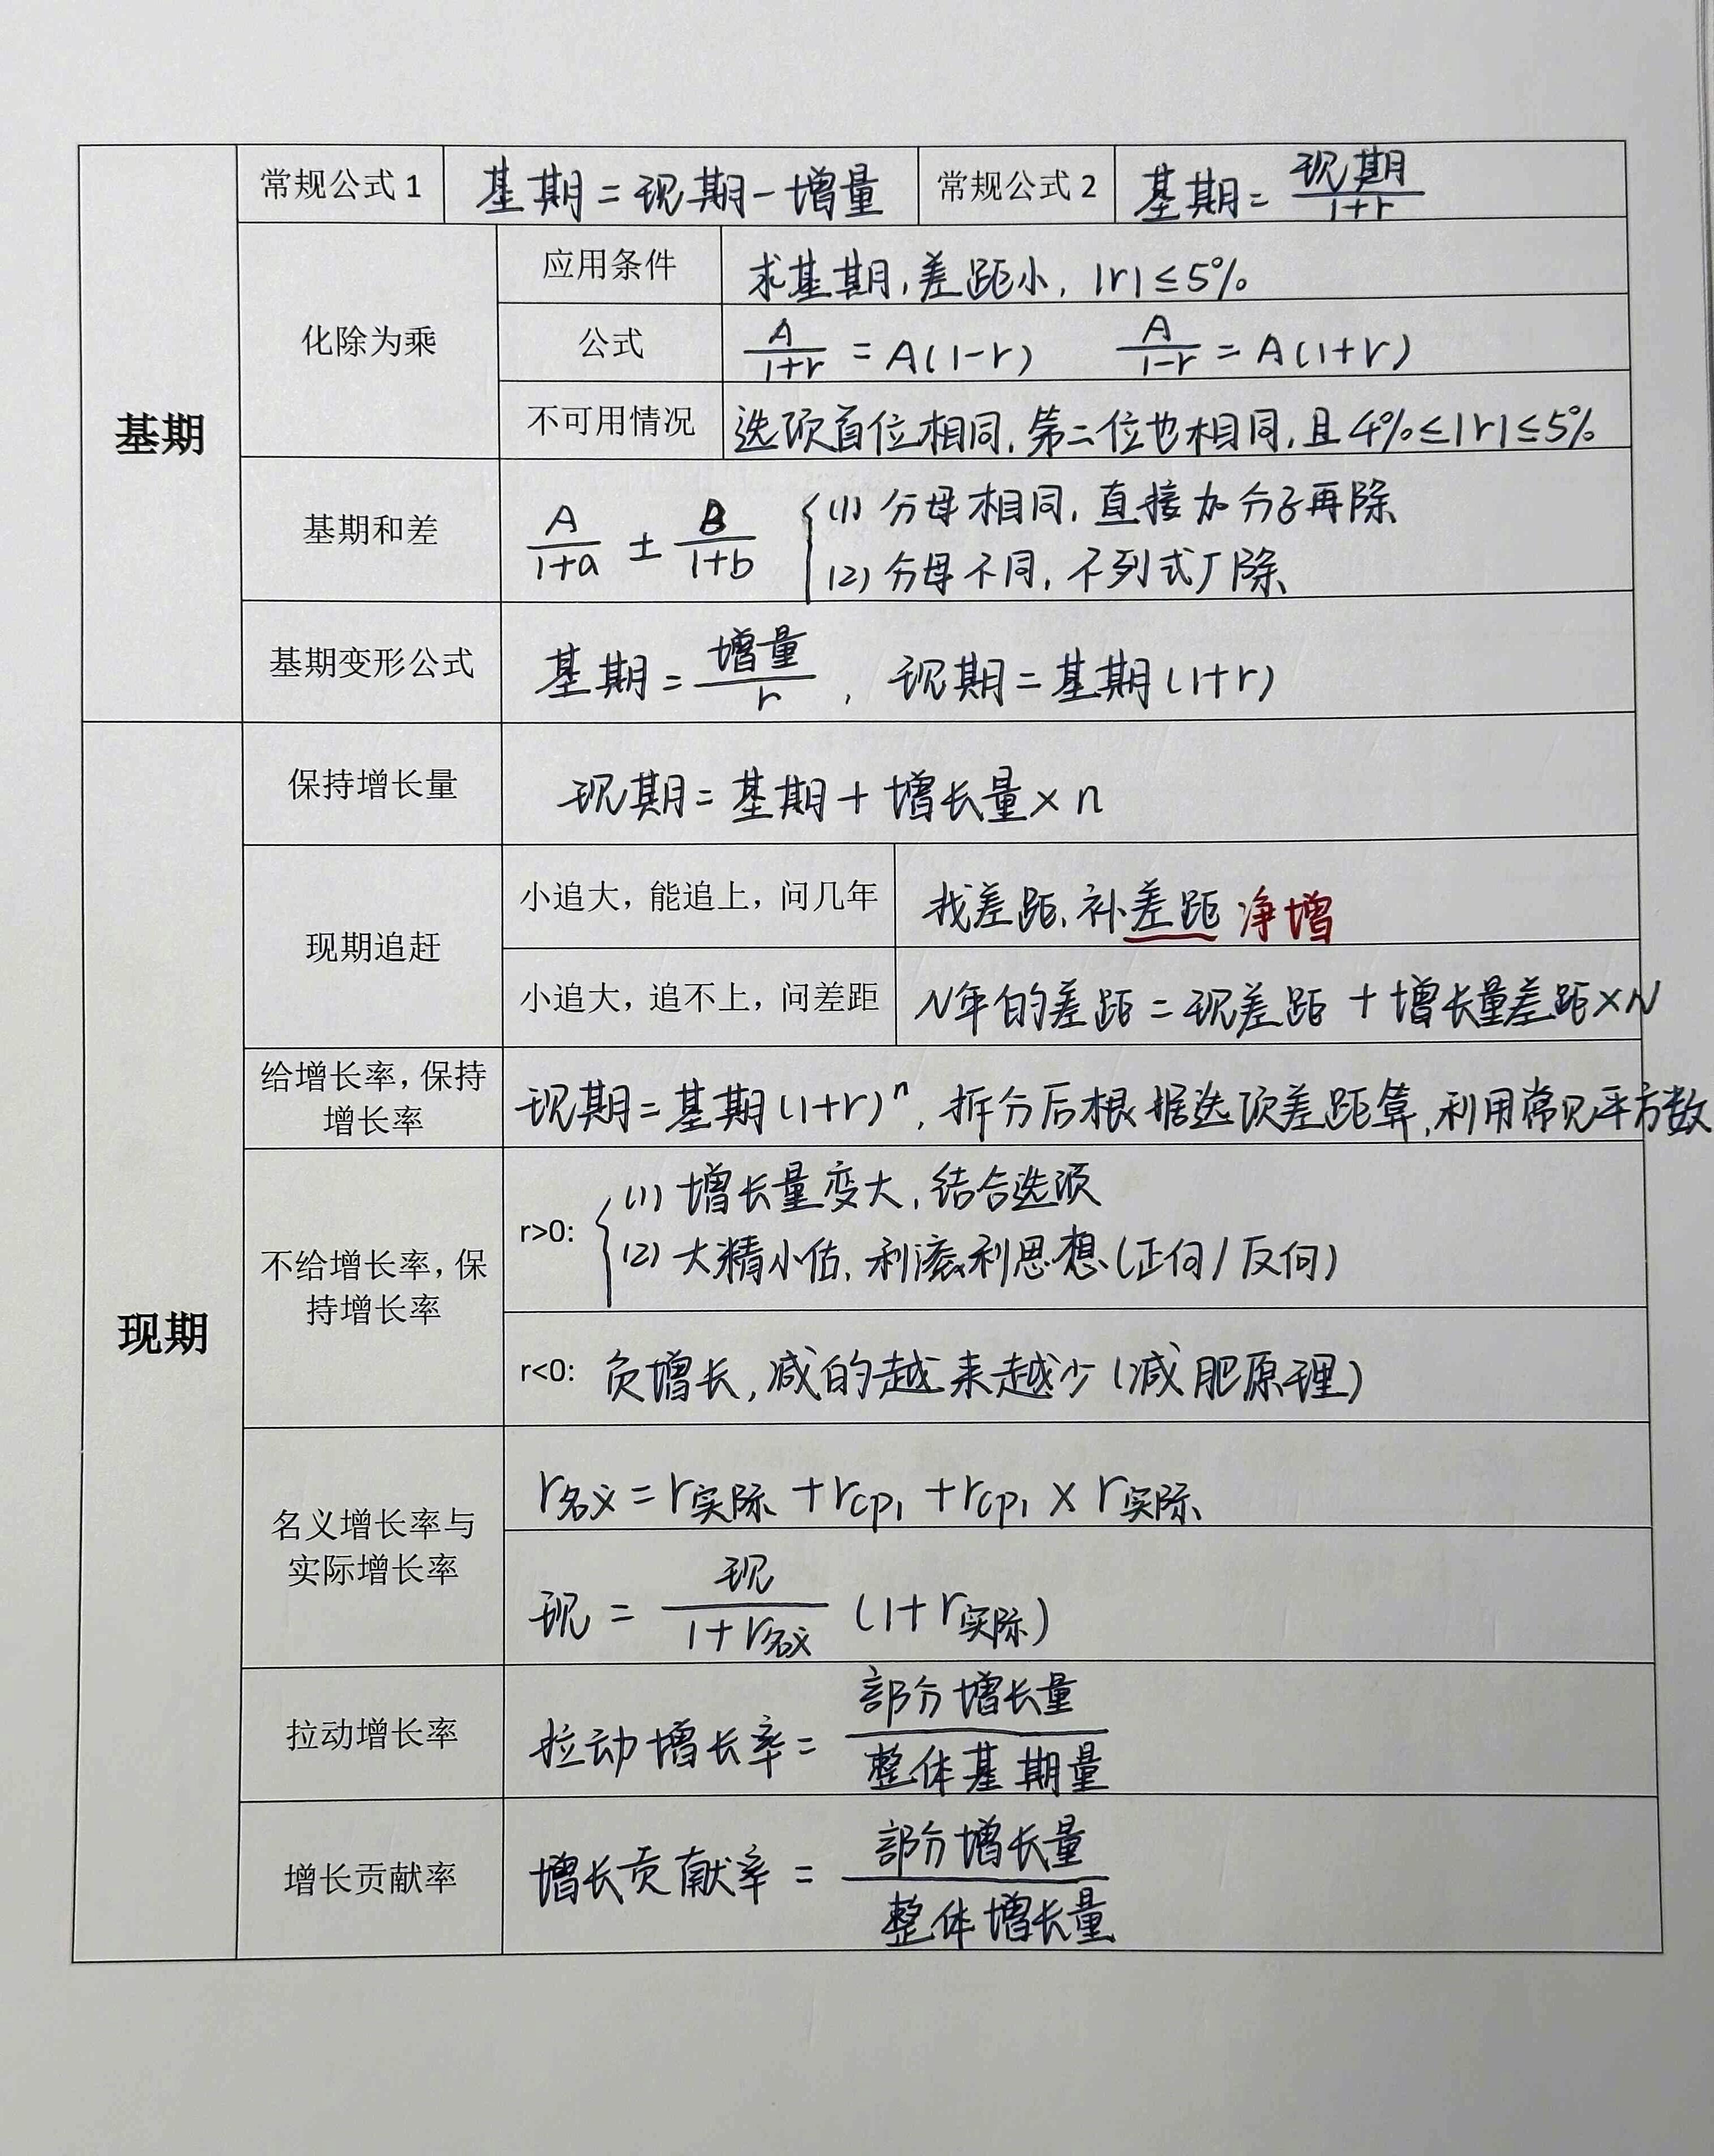 常规公式1 基期=现期-增量 常规公式2 基期=现期/1+r
应用条件 求基期,差距小,|r|≤5%
化除为乘 公式 A/1+r=A(1-r) A/1-r=A(1+r)
不可用情况 选项首位相同,第二位也相同,且4%≤|r|≤5%
基期
基期和差 A/1+a ± B/1+b
(1) 分母相同,直接加分子再除
(2) 分母不同,不列式厂除
基期变形公式 基期=增量/r, 现期=基期(1+r)
保持增长量 现期=基期+增长量×n
现期追赶
小追大,能追上,问几年 找差距,补差距 净增
小追大,追不上,问差距 N年的差距=现差距+增长量差距×N
给增长率,保持
增长率
现期=基期(1+r)ⁿ,拆分后根据选项差距算,利用常见平方数
现期
不给增长率,保
持增长率
r>0: (1) 增长量变大,结合选项
(2) 大精小估,利滚利思想(正向/反向)
r<0: 负增长,减的越来越少(减肥原理)
名义增长率与
实际增长率
r名义=r实际+rcpi+rcpi×r实际
现=现/1+r名义 (1+r实际)
拉动增长率 拉动增长率=部分增长量/整体基期量
增长贡献率 增长贡献率=部分增长量/整体增长量